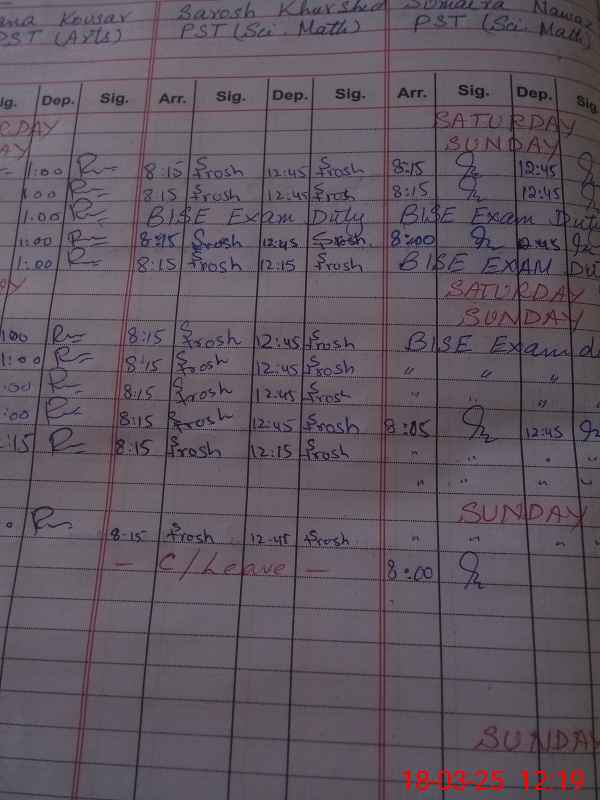 ana Kousar Sarosh Khurshed Sumaira Nawaz
PST (Arts) PST (Sci. Math) PST (Sci. Math)
ig. Dep. Sig. Arr. Sig. Dep. Sig. Arr. Sig. Dep. Sig
RDAY SATURDAY
AY SUNDAY
1:00 8:15 Srosh 12:45 Srosh 8:15 12:45
1:00 8:15 Srosh 12:45 Srosh 8:15 12:45
1:00 BISE Exam Duty BISE Exam Dut
1:00 8:15 Srosh 12:45 Srosh 8:00 12:45
1:00 8:15 Srosh 12:15 Srosh BISE EXAM Du
SATURDAY
SUNDAY
:00 8:15 Srosh 12:45 Srosh BISE Exam d
1:00 8:15 Srosh 12:45 Srosh " " "
:00 8:15 Srosh 12:45 Srosh " " " "
:00 8:15 Srosh 12:45 Srosh 8:05 12:45
:15 8:15 Srosh 12:15 Srosh " " " "
" " " "
SUNDAY
8:15 Srosh 12:45 Srosh " " " "
- C/Leave - 8:00
SUNDAY
18-03-25 12:19